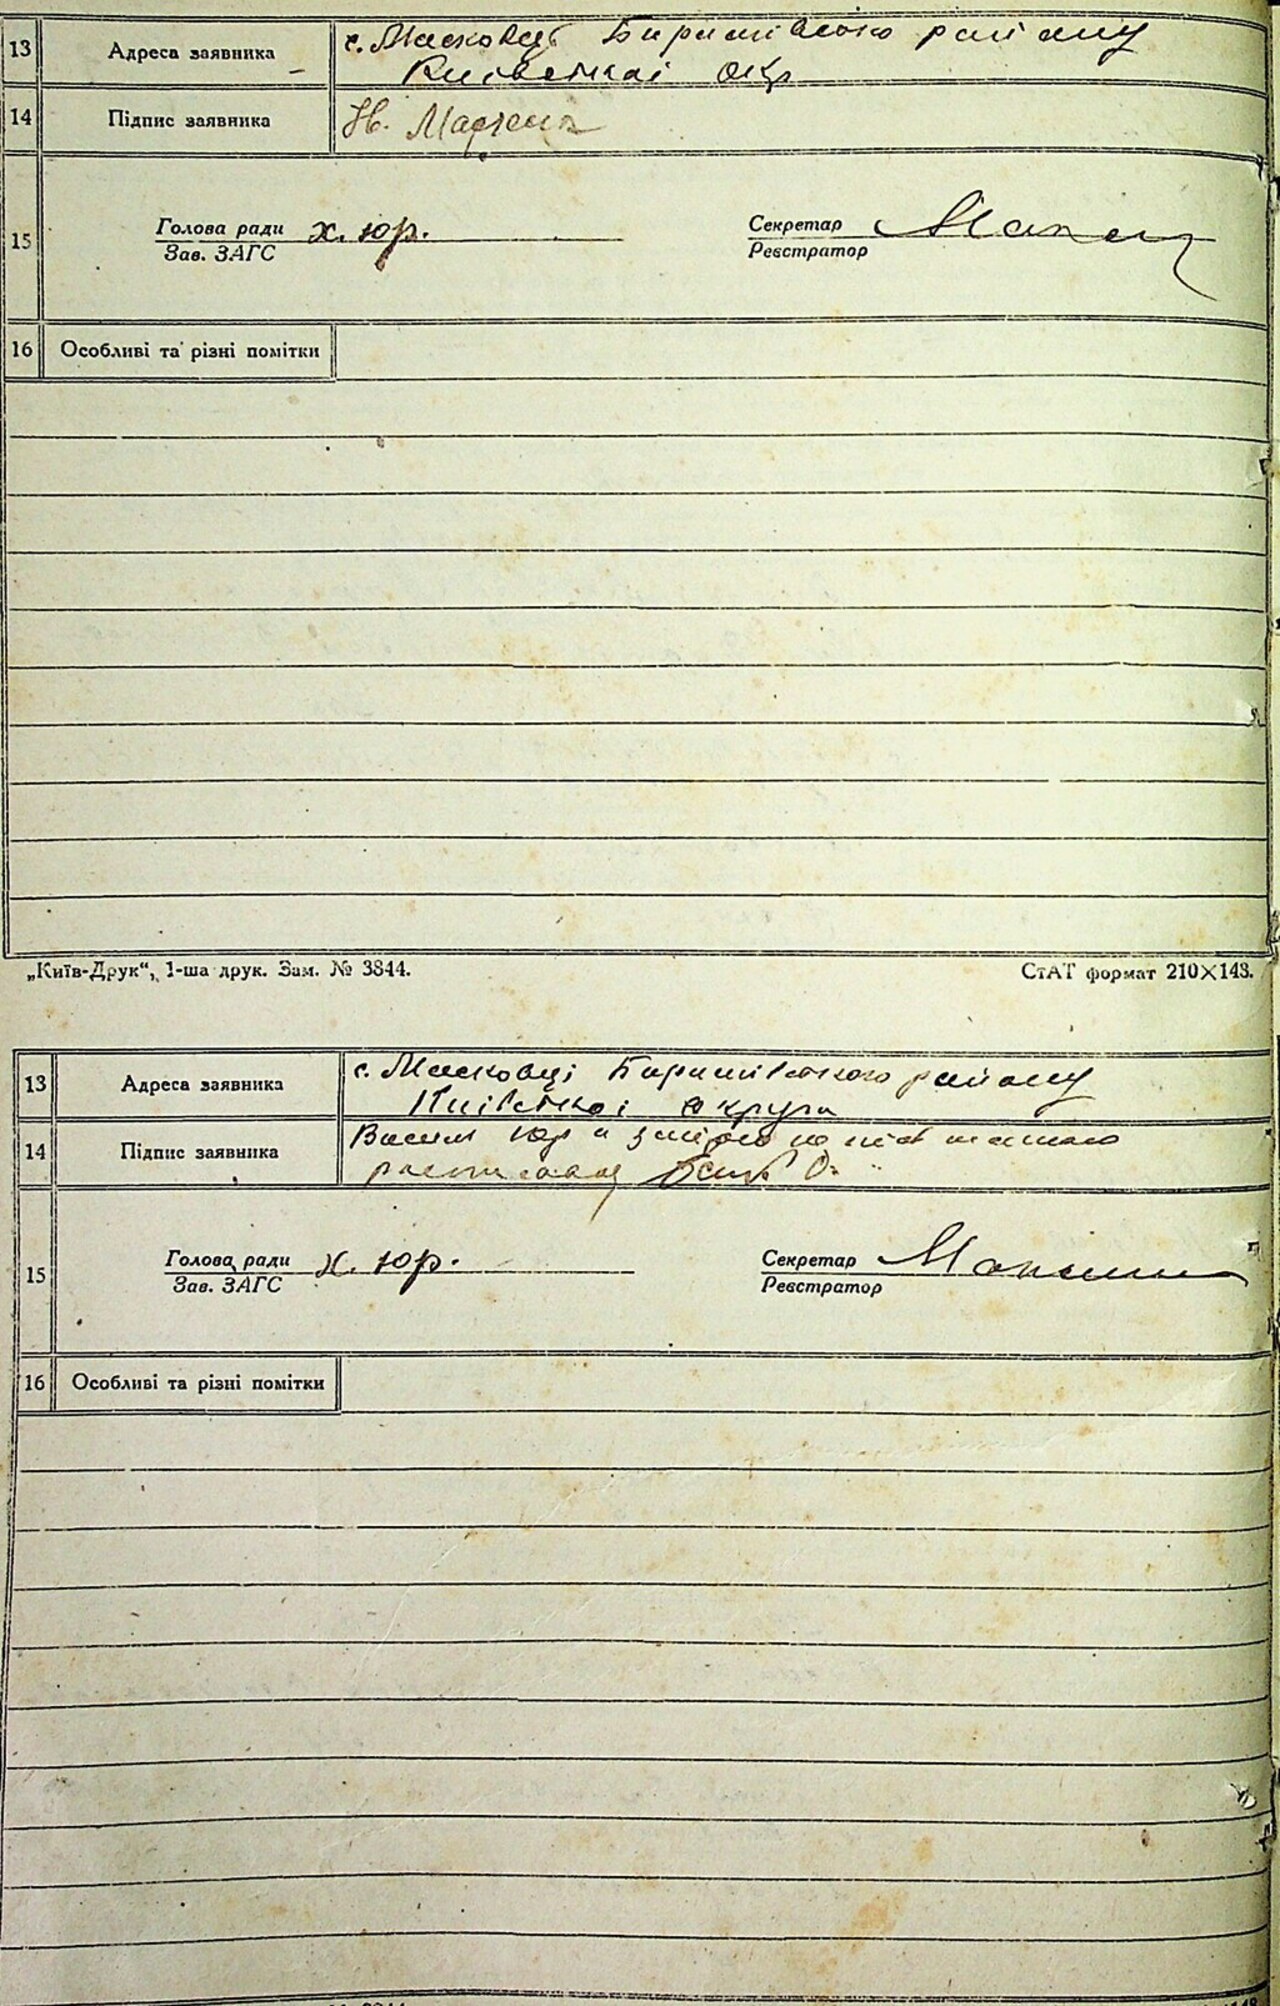 13 Адреса заявника с. Масковці Баришівського району
Київської окр
14 Підпис заявника
15 Голова ради х. юр. Секретар
Зав. ЗАГС Реєстратор
16 Особливі та різні помітки
„Київ-Друк“, 1-ша друк. Зам. № 3844. СтАТ формат 210×143.
13 Адреса заявника с. Масковці Баришівського району
Київської округи
14 Підпис заявника
15 Голова ради х. юр. Секретар
Зав. ЗАГС Реєстратор
16 Особливі та різні помітки